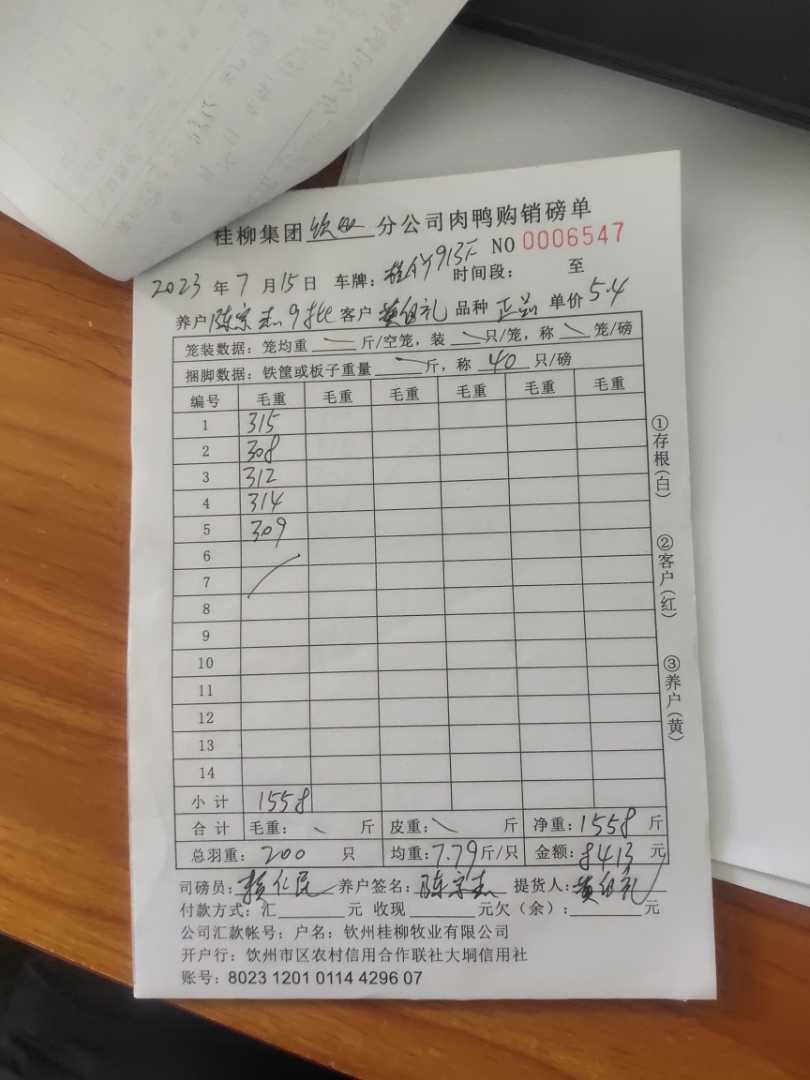 桂柳集团钦州分公司肉鸭购销磅单
NO 0006547
2023年7月15日 车牌：桂 913F 时间段： 至
养户陈宗杰9批 客户黄 礼 品种正品 单价5.4
笼装数据：笼均重 斤/空笼，装 只/笼，称 笼/磅
捆脚数据：铁筐或板子重量 斤，称 40 只/磅
编号 毛重 毛重 毛重 毛重 毛重 毛重
1 315
2 308
3 312
4 314
5 309
6
7
8
9
10
11
12
13
14
小计 1558
合计 毛重： 斤 皮重： 斤 净重：1558斤
总羽重：200 只 均重：7.79斤/只 金额：8413元
司磅员：赖仁民 养户签名：陈宗杰 提货人：黄 礼
付款方式：汇 元 收现 元欠（余）： 元
公司汇款帐号：户名：钦州桂柳牧业有限公司
开户行：钦州市区农村信用合作联社大垌信用社
账号：8023 1201 0114 4296 07
①存根（白）
②客户（红）
③养户（黄）